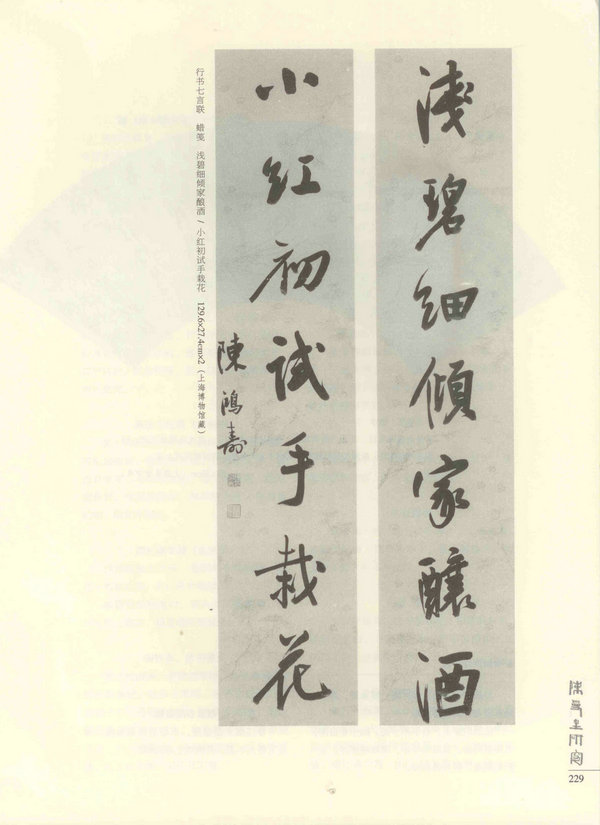 淺碧細傾家釀酒
小紅初試手栽花
陳鴻壽
行书七言联　蜡笺　浅碧细倾家酿酒 / 小红初试手栽花　129.6×27.4cm×2（上海博物馆藏）
229